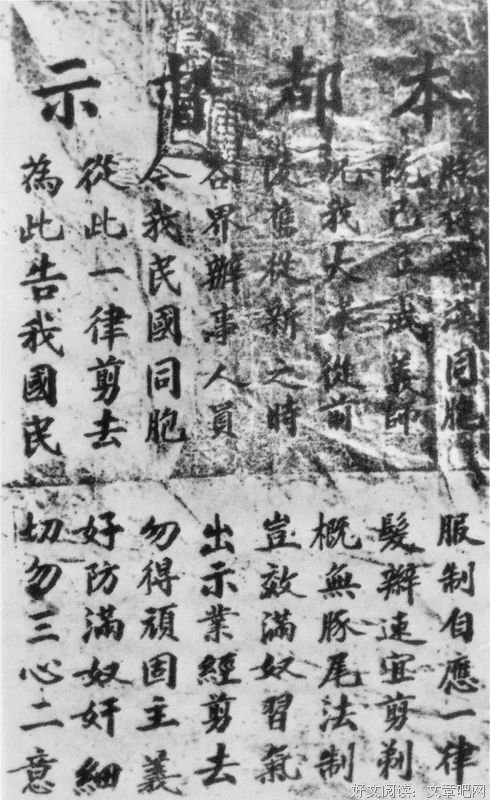 本都督示
滿同胞 服制自應一律
既已正成義師 髮辮速宜剪剃
況我大漢從前 概無豚尾法制
舊從新之時 豈效滿奴習氣
各界辦事人員 出示業經剪去
令我民國同胞 勿得頑固主義
從此一律剪去 好防滿奴奸細
為此告我國民 切勿三心二意
好文阅读：文章吧网